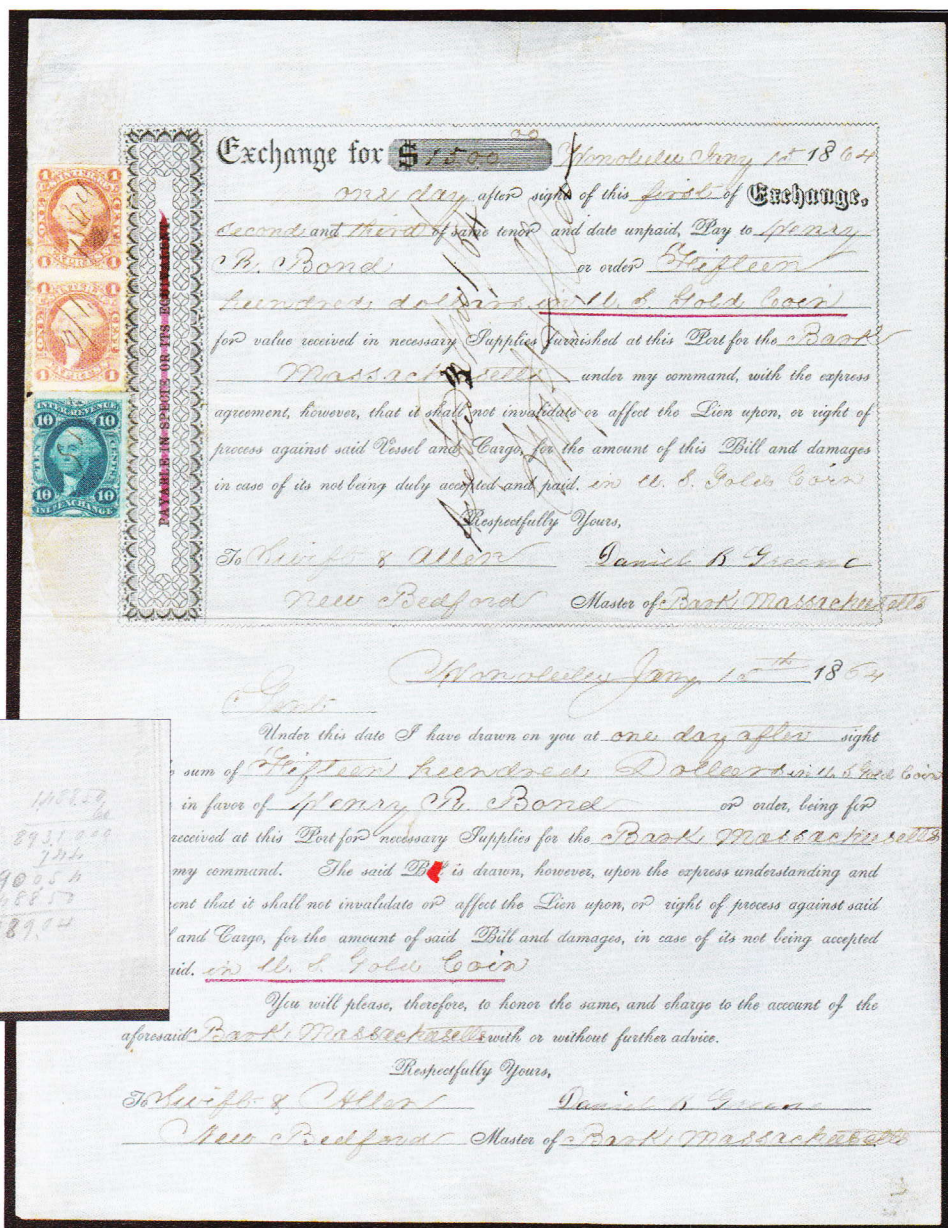 Exchange for $1500.00 Honolulu Jany 15 1864
one day after sight of this first of Exchange,
second and third of same tenor and date unpaid, Pay to Henry
R. Bond or order Fifteen
hundred dollars in U. S. Gold Coin
for value received in necessary Supplies furnished at this Port for the Bark
Massachusetts under my command, with the express
agreement, however, that it shall not invalidate or affect the Lien upon, or right of
process against said Vessel and Cargo, for the amount of this Bill and damages
in case of its not being duly accepted and paid. in U. S. Gold Coin
Respectfully Yours,
To Swift & Allen Daniel B Greene
New Bedford Master of Bark Massachusetts
PAYABLE IN SPECIE OR ITS EQUIVALENT
1 1
1 1
1 1
1 1
INTER. REVENUE
10 10
TEN CENTS
10 10
INL. EXCHANGE
Honolulu Jany 15th 1864
Gents
Under this date I have drawn on you at one day after sight
sum of Fifteen hundred Dollars in U S Gold Coin
in favor of Henry R. Bond or order, being for
received at this Port for necessary Supplies for the Bark Massachusetts
my command. The said Bill is drawn, however, upon the express understanding and
ent that it shall not invalidate or affect the Lien upon, or right of process against said
and Cargo, for the amount of said Bill and damages, in case of its not being accepted
aid. in U. S. Gold Coin
You will please, therefore, to honor the same, and charge to the account of the
aforesaid Bark Massachusetts with or without further advice.
Respectfully Yours,
To Swift & Allen Daniel B Greene
New Bedford Master of Bark Massachusetts